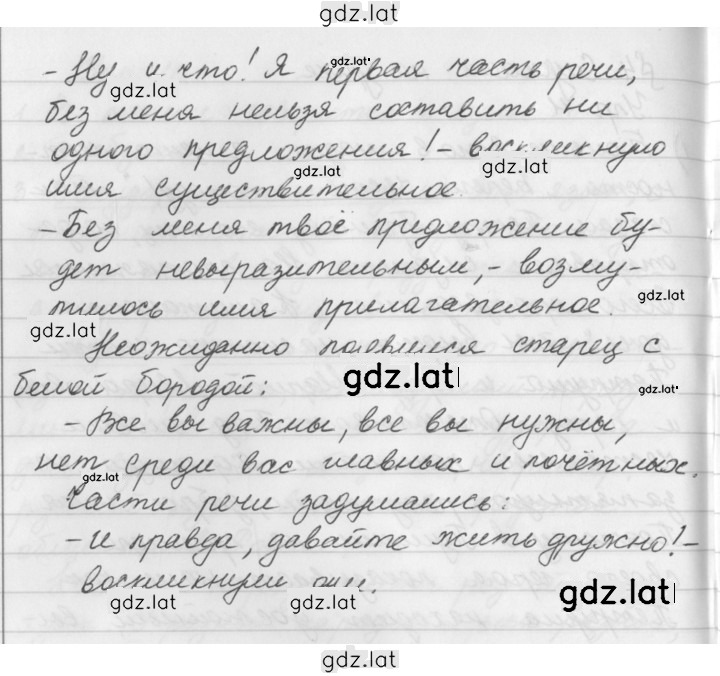 gdz.lat
- Ну и что! Я первая часть речи,
gdz.lat
gdz.lat
без меня нельзя составить ни
одного предложения! - воскликнуло
gdz.lat
имя существительное.
- Без меня твоё предложение бу-
дет невыразительным, - возму-
gdz.lat
тилось имя прилагательное.
gdz.lat
Неожиданно появился старец с
gdz.lat
gdz.lat
белой бородой:
- Все вы важны, все вы нужны,
нет среди вас главных и почётных.
gdz.lat
Части речи задумались:
- И правда, давайте жить дружно! -
воскликнули они.
gdz.lat
gdz.lat
gdz.lat
gdz.lat